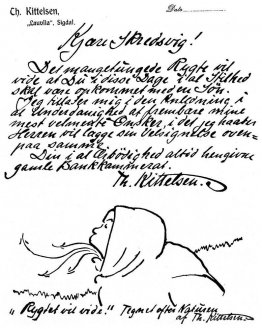 Th. Kittelsen,
"Lauvlia", Sigdal.
Date
Kjære Skredsvig!
Det mangetungede Rygte vil
vide at Du i disse Dage i al Stilhed
skal være opkommet med en Søn.
Jeg tillater mig i den Anledning i
al Underdanighed at frembære mine
mest velmente Ønsker, i det jeg haaber
Herren vil lægge sin Velsignelse oven-
paa samme.
Din i al Ærbødighed altid hengivne
gamle Bankkammerat.
Th. Kittelsen.
"Rygtet vil vide." Tegnet efter Naturen
af Th. Kittelsen.